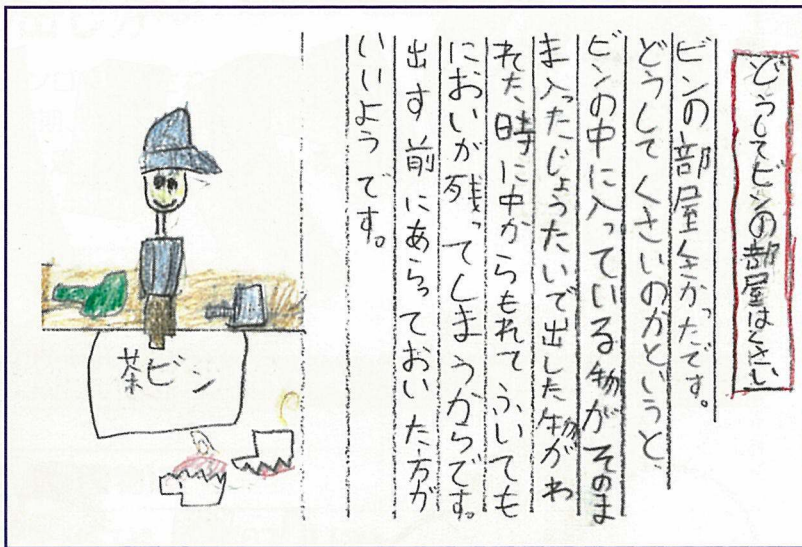 どうしてビンの部屋はくさい
ビンの部屋くさかったです。
どうしてくさいのかというと、
ビンの中に入っている物がそのま
ま入ったじょうたいで出した物がわ
れた時に中からもれてふいても
においが残ってしまうからです。
出す前にあらっておいた方が
いいようです。
茶ビン